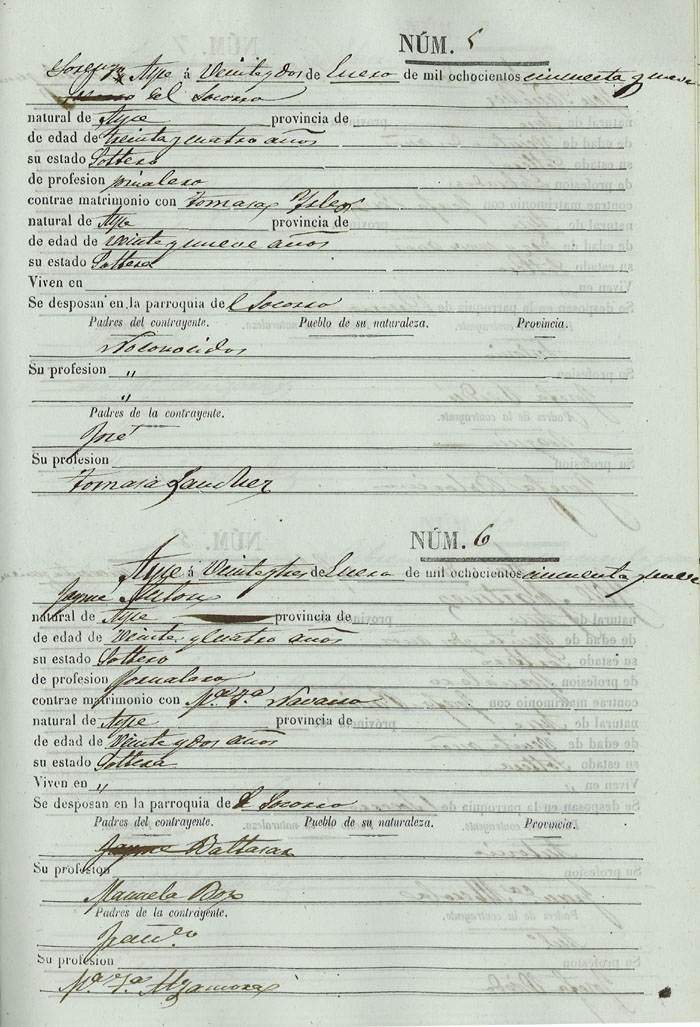 NÚM. 5
Aspe á Veinte y dos de Enero de mil ochocientos cincuenta y nueve
del Socorro
natural de Aspe provincia de
de edad de treinta y cuatro años
su estado Soltero
de profesion jornalero
contrae matrimonio con Tomasa
natural de Aspe provincia de
de edad de veinte y nueve años
su estado Soltera
Viven en
Se desposan en la parroquia del Socorro
Padres del contrayente. Pueblo de su naturaleza. Provincia.
No conocidos
Su profesion "
"
Padres de la contrayente.
José
Su profesion
Tomasa Sanchez
NÚM. 6
Aspe á Veinte y tres de Enero de mil ochocientos cincuenta y nueve
Jayme Anton
natural de Aspe provincia de
de edad de veinte y cuatro años
su estado Soltero
de profesion Jornalero
contrae matrimonio con Mª Fª Navarro
natural de Aspe provincia de
de edad de veinte y dos años
su estado Soltera
Viven en "
Se desposan en la parroquia de Socorro
Padres del contrayente. Pueblo de su naturaleza. Provincia.
Baltasar
Su profesion
Manuela
Padres de la contrayente.
Franco
Su profesion
Mª Fª Alzamora